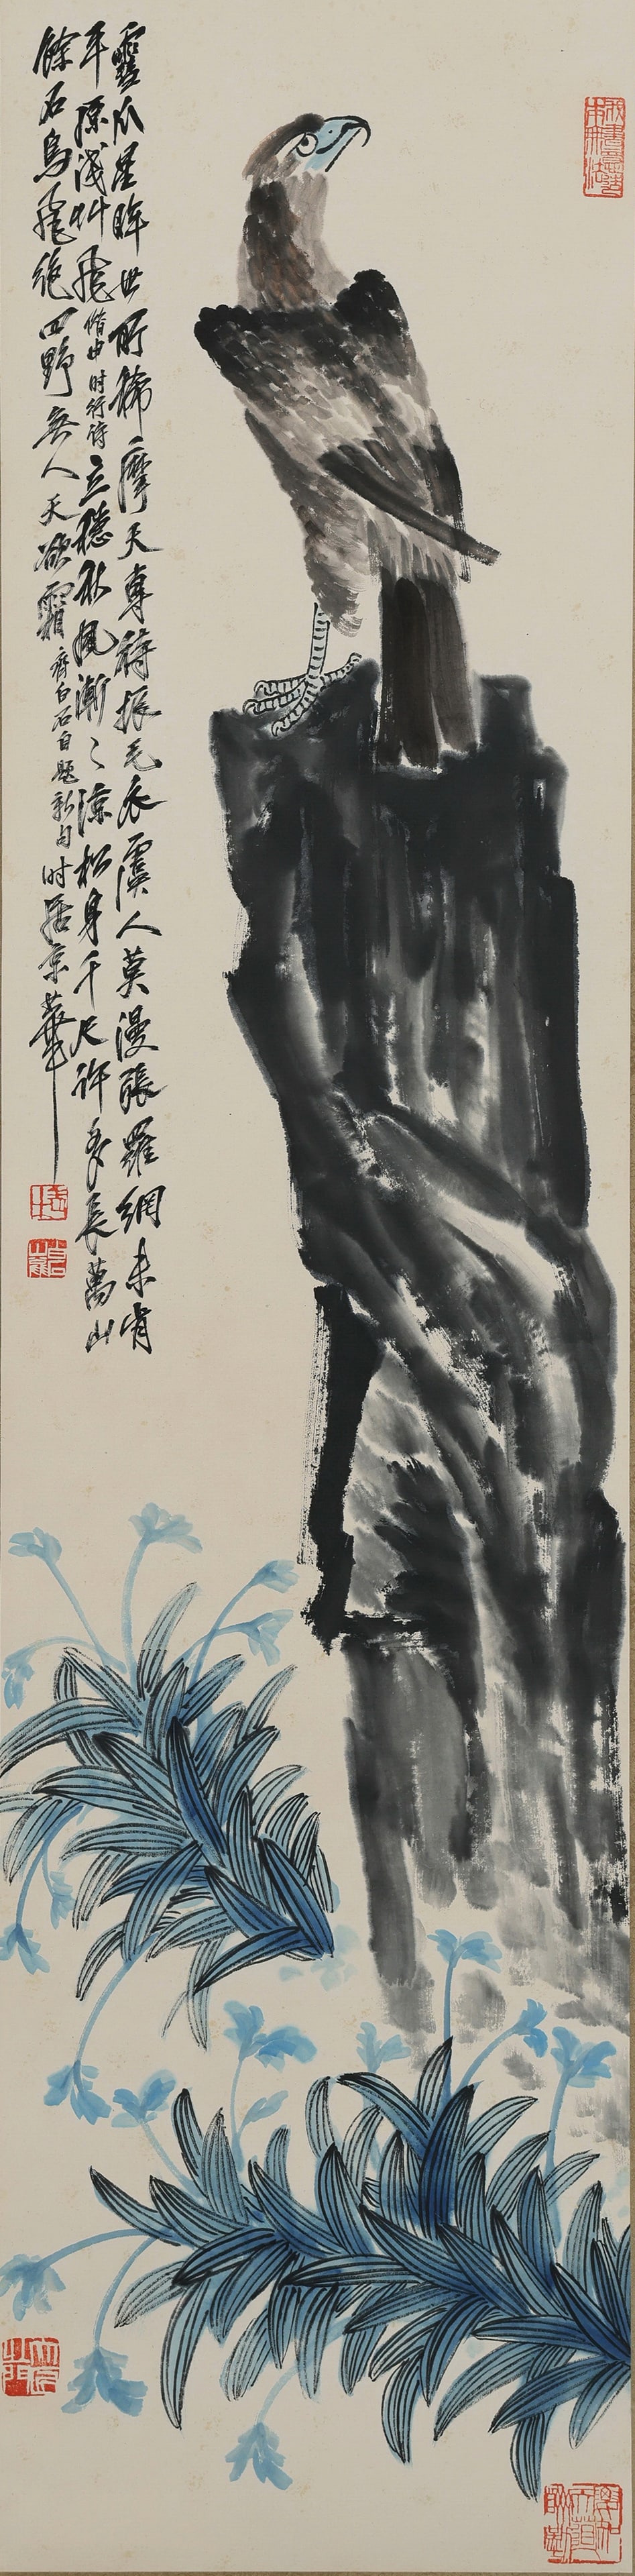 靈爪星眸世所稀摩天專待振毛衣虞人莫漫張羅網未肯
平原淺草飛借由时行侍立穩秋風漸〻涼松身千尺許多長萬山
餘石鳥飛絶四野無人天欲霜齊白石自題新句时居京華